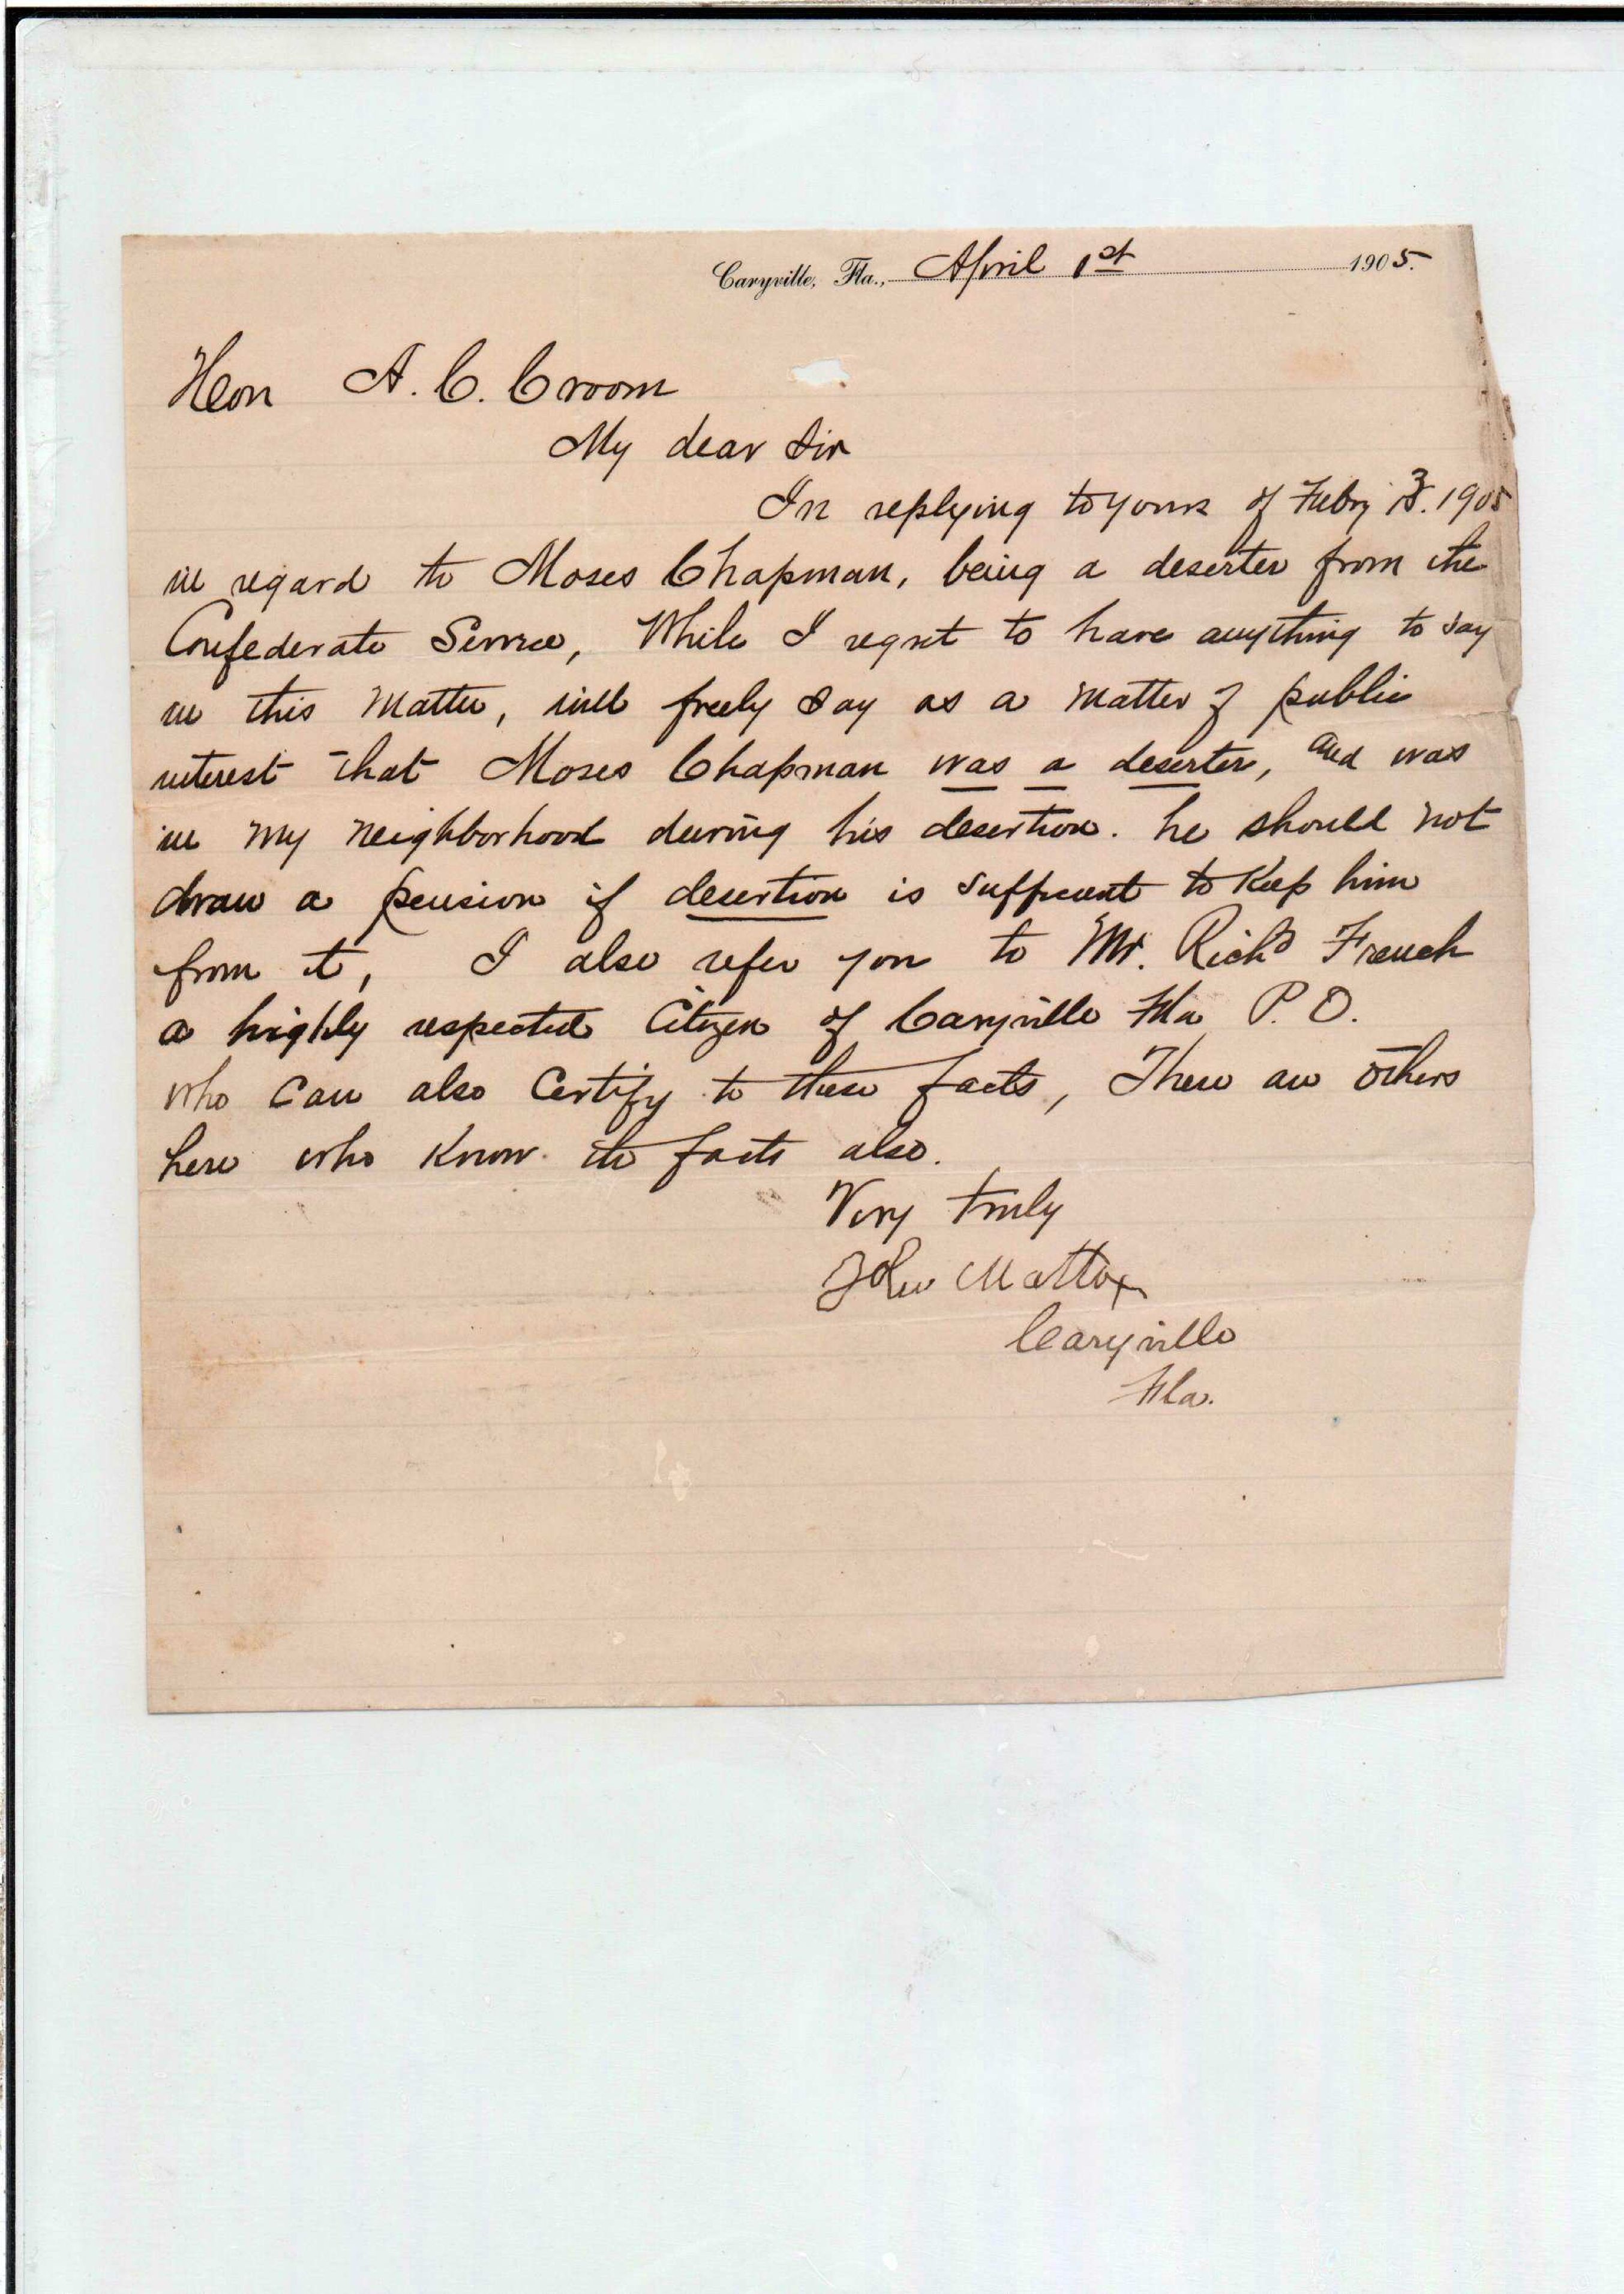 Caryville, Fla., April 1st 1905.
Hon A. C. Croom
My dear Sir
In replying to yours of Febry 13. 1905
in regard to Moses Chapman, being a deserter from the
Confederate Service, While I regret to have anything to say
in this Matter, will freely say as a matter of public
interest that Moses Chapman was a deserter, and was
in my neighborhood during his desertion. he should not
draw a pension if desertion is sufficient to Keep him
from it, I also refer you to Mr. Richd French
a highly respected Citizen of Caryville Fla P. O.
who can also Certify to these facts, There are others
here who Know the facts also.
Very truly
John Mattox
Caryville
Fla.